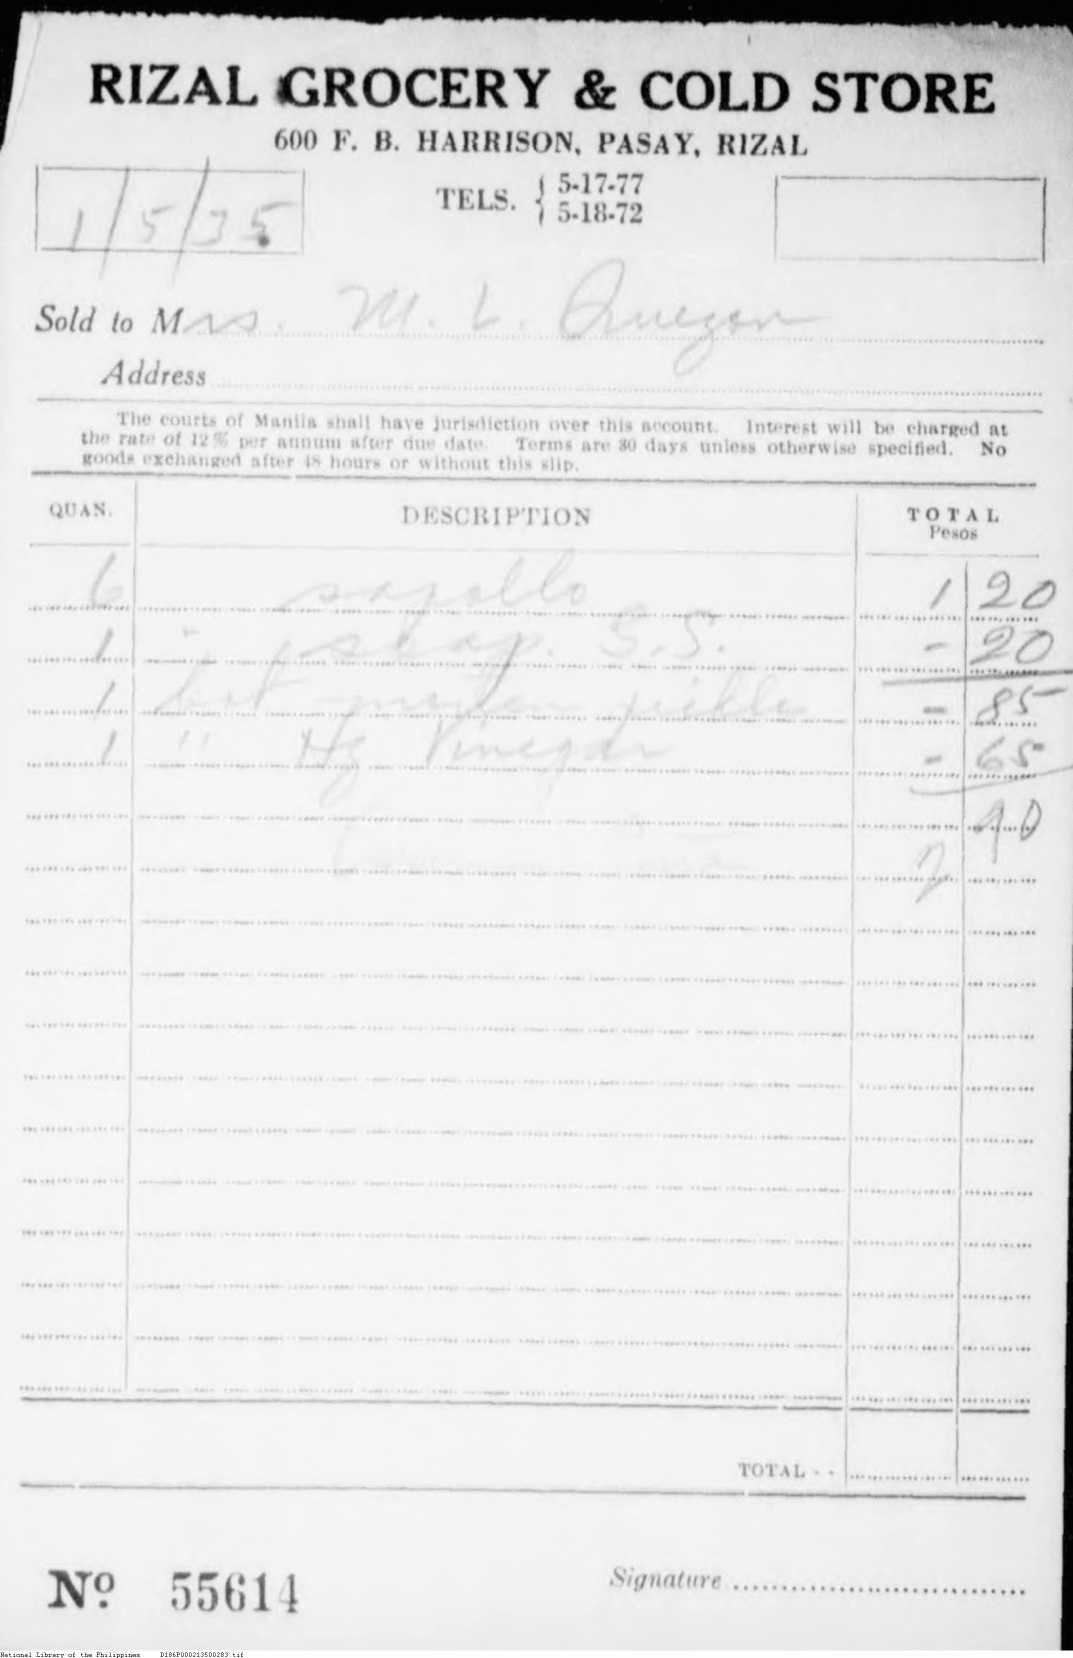 RIZAL GROCERY & COLD STORE
600 F. B. HARRISON, PASAY, RIZAL
TELS. { 5-17-77
5-18-72
1/5/35
Sold to Mrs. M. L. Quezon
Address
The courts of Manila shall have jurisdiction over this account. Interest will be charged at
the rate of 12% per annum after due date. Terms are 30 days unless otherwise specified. No
goods exchanged after 48 hours or without this slip.
QUAN. DESCRIPTION TOTAL
Pesos
6 sapollo 1 20
1 " S.S. - 20
1 bot pickle - 85
1 " Hz Vinegar - 65
2 90
TOTAL - -
No. 55614 Signature
National Library of the Philippines D186P000213500283.tif